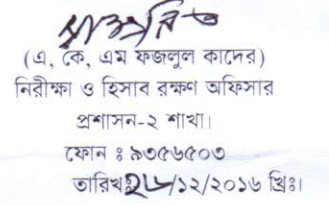 স্বাক্ষরিত
(এ, কে, এম ফজলুল কাদের)
নিরীক্ষা ও হিসাব রক্ষণ অফিসার
প্রশাসন-২ শাখা।
ফোন ঃ ৯৩৫৬৫০৩
তারিখঃ২৮/১২/২০১৬ খ্রিঃ।